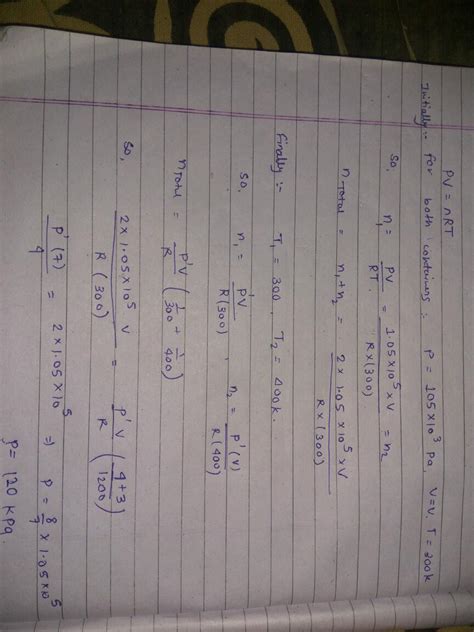 PV = nRT
Initially :- for both containers :- P = 105 × 10³ Pa, V = V. T = 300k
So, n₁ = PV / RT. = 1.05 × 10⁵ × V / R × (300) = n₂
n Total = n₁ + n₂ = 2 × 1.05 × 10⁵ × V / R × (300)
Finally :- T₁ = 300, T₂ = 400k.
So. n₁ = P'V / R(300) , n₂ = P'(V) / R(400)
n Total = P'V / R ( 1/300 + 1/400 )
So, 2 × 1.05 × 10⁵ V / R (300) = P'V / R ( 4+3 / 1200 )
P'(7) / 4 = 2 × 1.05 × 10⁵ ⇒ P = 8/7 × 1.05 × 10⁵
P = 120 kPa.